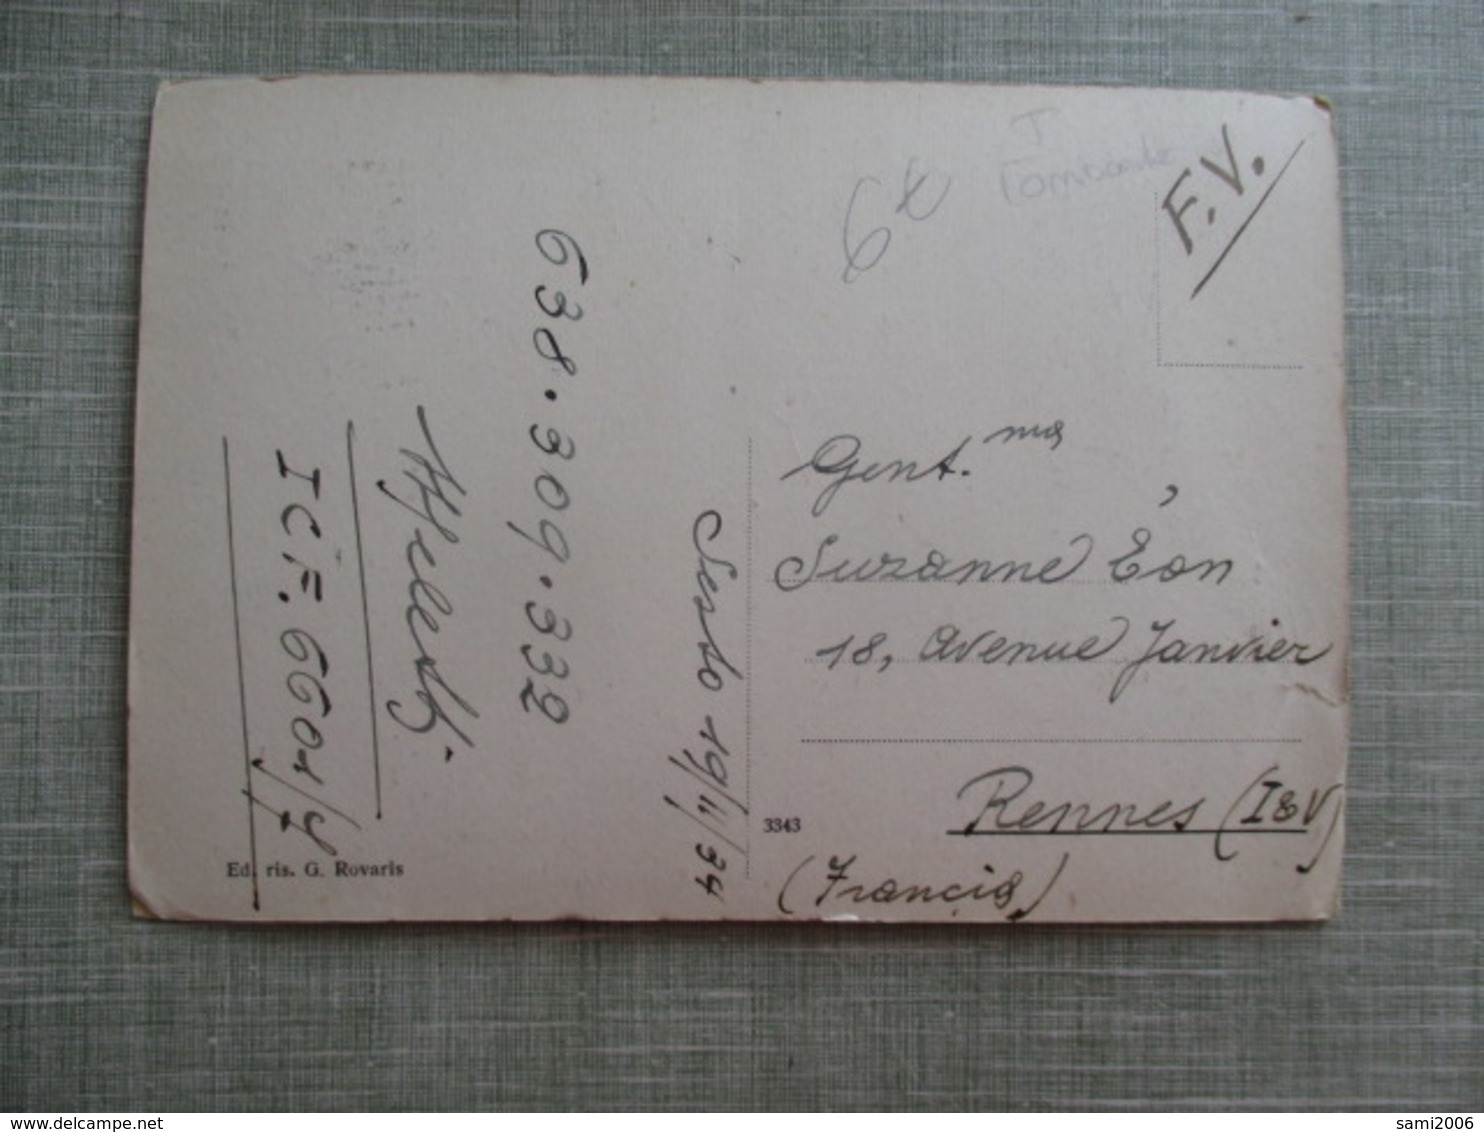 Sesto 19/11/34
638.309.332
ICF. 6601/4
Ed. ris. G. Rovaris
3343
6€
F.V.
Gent.ma
Suzanne Éon
18, Avenue Janvier
Rennes (I&V)
(Francia)
sami2006
delcampe.net